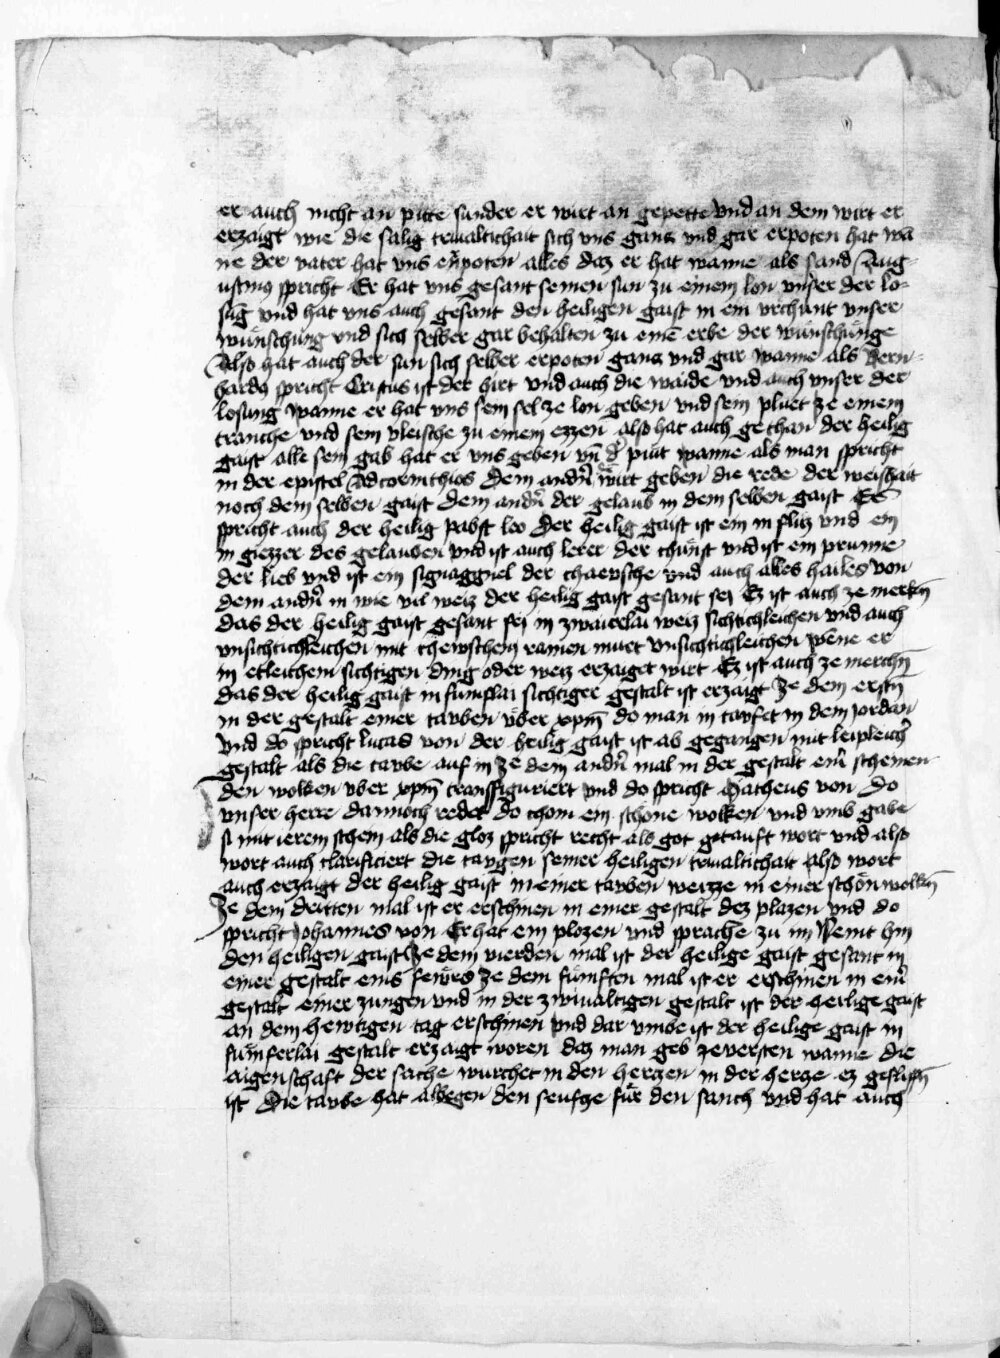 er auch nicht an pitte sunder er wirt an gepette vnd an dem wirt er
erzaigt wie die sälig triualtichait sich vns gancz vnd gar erpoten hat wā
ne der vater hat vns enpoten alles daz er hat wanne als sand Aug-
ustinus spricht Er hat vns gesant seinen sun zu einem lon vnser der lo-
sūg vnd hat vns auch gesant den heiligen gaist in ein vrchunt vnser
wünschung vnd sich selber gar behalten zu einē erbe der wünschunge
Also hat auch der sun sich selber erpoten gancz vnd gar wanne als Bern-
hardus spricht Cristus ist der hirt vnd auch die waide vnd auch vnser der
losung wanne er hat vns sein sel ze lon geben vnd sein pluet ze einem
tranche vnd sein vleische zu einem ezzen also hat auch gethan der heilig
gaist alle sein gab hat er vns geben vn̄ wanne als man spricht
in der epistel Ad corinthios Dem andn̄ wirt geben die rede der weishait
noch dem selben gaist dem andn̄ der gelaub in dem selben gaist Es
spricht auch der heilig Pabst leo Der heilig gaist ist ein in flüz vnd ein
in giezzer des gelauben vnd ist auch lerer der chunst vnd ist ein prunne
der lieb vnd ist ein der chaewsche vnd auch alles hailes von
dem andn̄ in wie vil weiz der heilig gaist gesant sei Ez ist auch ze merkn̄
das der heilig gaist gesant sei in zwaierlai weiz sichtichleichen vnd auch
vnsichtichleichen mit chewschem rainen muet vnsichtichleichen wēne er
in etleichem sichtigen ding oder weiz erzaiget wirt Ez ist auch ze merchn̄
das der heilig gaist in fumflai sichtiger gestalt ist erzaigt Ze dem erstn̄
in der gestalt einer tauben vber xpm̄ do man in taufet in dem Jordan
Vnd do spricht lucas von der heilig gaist ist ab gegangen mit leipleich̄
gestalt als die taube auf in Ze dem andn̄ mal in der gestalt ein̄ scheinen
den wolken vber xpm̄ transfiguriert vnd do spricht Matheus von Do
vnser herre dannoch redet do chom ein schone wolken vnd vmb gabe
si mit ierem schein als die gloz spricht recht als got getauft wort vnd also
wort auch clarificiert die taugen seiner heiligen triualtichait also wort
auch erzaigt der heilig gaist in einer tauben weizze in einer schön wolkn̄
Ze dem dritten mal ist er erschinen in einer gestalt dez plazen vnd do
spricht Johannes von Er hat ein plozen vnd sprache zu im Nemt hin
den heiligen gaist Ze dem vierden mal ist der heilige gaist gesant in
einer gestalt eins fewrs Ze dem fümften mal ist er erschinen in ein̄
gestalt einer zungen vnd in der zwiualtigen gestalt ist der heilige gaist
an dem hewtigen tag erschinen vnd dar vmbe ist der heilige gaist in
fumferlai gestalt erzaigt woren daz man geb ze versten wanne die
aigenschaft der sache wurchet in den herczen in der herze ez geflissn̄
ist Die taube hat albegen den seufze für den sanch vnd hat auch